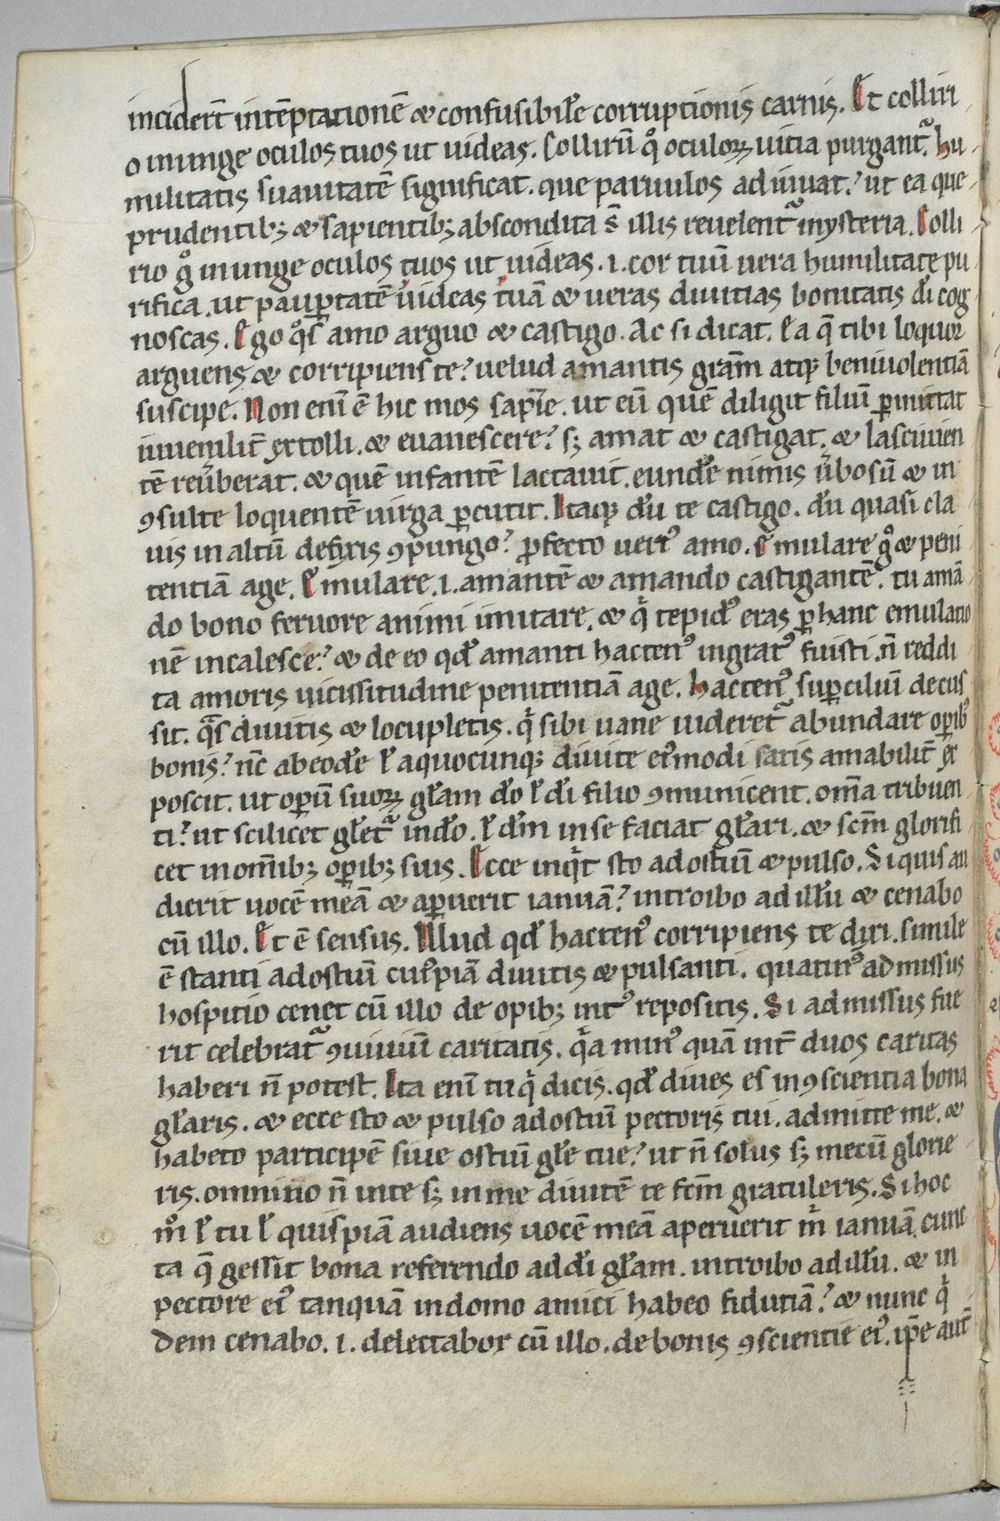 incider̄t intēptationē & confusibile corruptionis carnis. Et colliri
o inunge oculos tuos ut uideas. Colliriū qͦ oculoꝝ uitia purgant᷑. hu
militatis suauitatē significat. que paruulos adiuuat. ut ea que
prudentibꝫ & sapientibꝫ abscondita s̄ illis reuelent᷑ mysteria. Colli
rio gͦ inunge oculos tuos ut uideas .i. cor tuū uera humilitate pu
rifica. ut paupertatē uideas tuā & ueras diuitias bonitatis dī cog
noscas. Ego qͦs amo arguo & castigo. Ac si dicat. Ea q̄ tibi loquor
arguens & corripiens te. uelud amantis grām atqꝫ beniuolentiā
suscipe. Non enī ē hic mos sapīe. ut eū quē diligit filiū ꝑmittat
iuuenilit̄ extolli. & euanescere. sꝫ amat & castigat. & lasciuien
tē reūberat. & quē infantē lactauit. eundē nimis ūbosū & in
ꝯsulte loquentē uirga ꝑcutit. Itaqꝫ dū te castigo. dū quasi cla
uis in altū defixis ꝯpungo. ꝓfecto uere amo. Emulare gͦ & peni
tentiā age. Emulare .i. amantē & amando castigantē. tu amā
do bono feruore animi imitare. & qͥ tepidꝰ eras ꝑ hanc emulatio
nē incalesce. & de eo qd̄ amanti hactenꝰ ingratꝰ fuisti. n̄ reddi
ta amoris uicissitudine penitentiā age. hactenꝰ suꝑciliū decus
sit. q̄si diuitis & locupletis. qͥ sibi uane uideret᷑ abundare oꝑibꝰ
bonis. nc̄ ab eodē ł a quocunqꝫ diuite eiꝰmodi satis amabilit̄ ex
poscit. ut operū suoꝝ glām dō ł dī filio ꝯmunicent. om̄a tribuen
ti. ut scilicet glet᷑ in dō. ł dm̄ in se faciat glari. & scm̄ glorifi
cet in om̄ibꝫ oꝑibꝫ suis. Ecce inqͥt sto ad ostiū & pulso. Si quis au
dierit uocē meā & aꝑuerit ianuā. introibo ad illū & cenabo
cū illo. Et ē sensus. Illud qd̄ hactenꝰ corripiens te dixi. simile
ē stanti ad ostiū cuiꝰpiā diuitis & pulsanti. quatinꝰ admissus
hospitio cenet cū illo de opibꝫ intꝰ repositis. Si admissus fue
rit celebrat᷑ ꝯuiuiū caritatis. qͥa minꝰ quā int̄ duos caritas
haberi n̄ potest. Ita enī tu qͥ dicis. qd̄ diues es in ꝯscientia bona
glaris. & ecce sto & pulso ad ostiū pectoris tui. admitte me. &
habeto participē siue ostiū glē tue. ut n̄ solus sꝫ mecū glorie
ris. omnino n̄ in te sꝫ in me diuitē te fcm̄ gratuleris. Si hoc
mͦ ł tu ł quispiā audiens uocē meā aperuerit mͥ ianuā. cunc
ta q̄ gessit bona referendo ad dī glām. introibo ad illū. & in
pectore eiꝰ tanquā in domo amici habeo fidutiā. & nunc qͥ
dem cenabo .i. delectabor cū illo. de bonis ꝯscientie eiꝰ. ip̄e aut̄